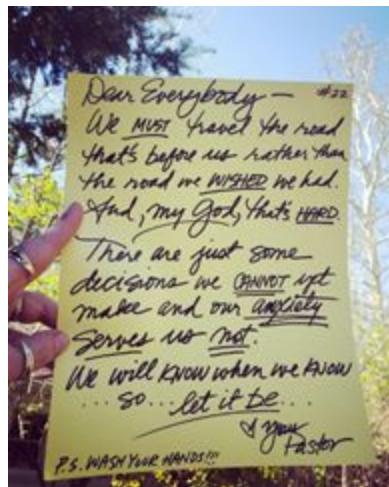 Dear Everybody — #22
We MUST travel the road
that's before us rather than
the road we WISHED we had.
And, my God, that's HARD.
There are just some
decisions we CANNOT yet
make and our anxiety
serves us not.
We will KNOW when we KNOW
... so ... let it be ...
your
Pastor
P.S. WASH YOUR HANDS!!!